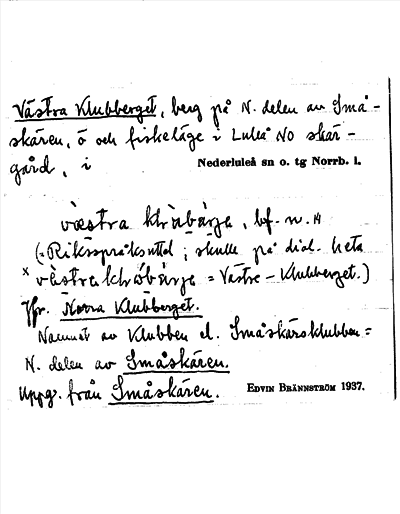 Västra Klubberget, berg på N. delen av Små-
skären, ö och fiskeläge i Luleå NO skär-
gård, i Nederluleå sn o. tg Norrb. l.
bf. n. A
(= Riksspråksuttal; skulle på dial. heta
= Västre-Klubberget.)
Jfr. Norra Klubberget.
Namnet av Klubben el. Småskärsklubben =
N. delen av Småskären.
Uppg. från Småskären. EDVIN BRÄNNSTRÖM 1937.